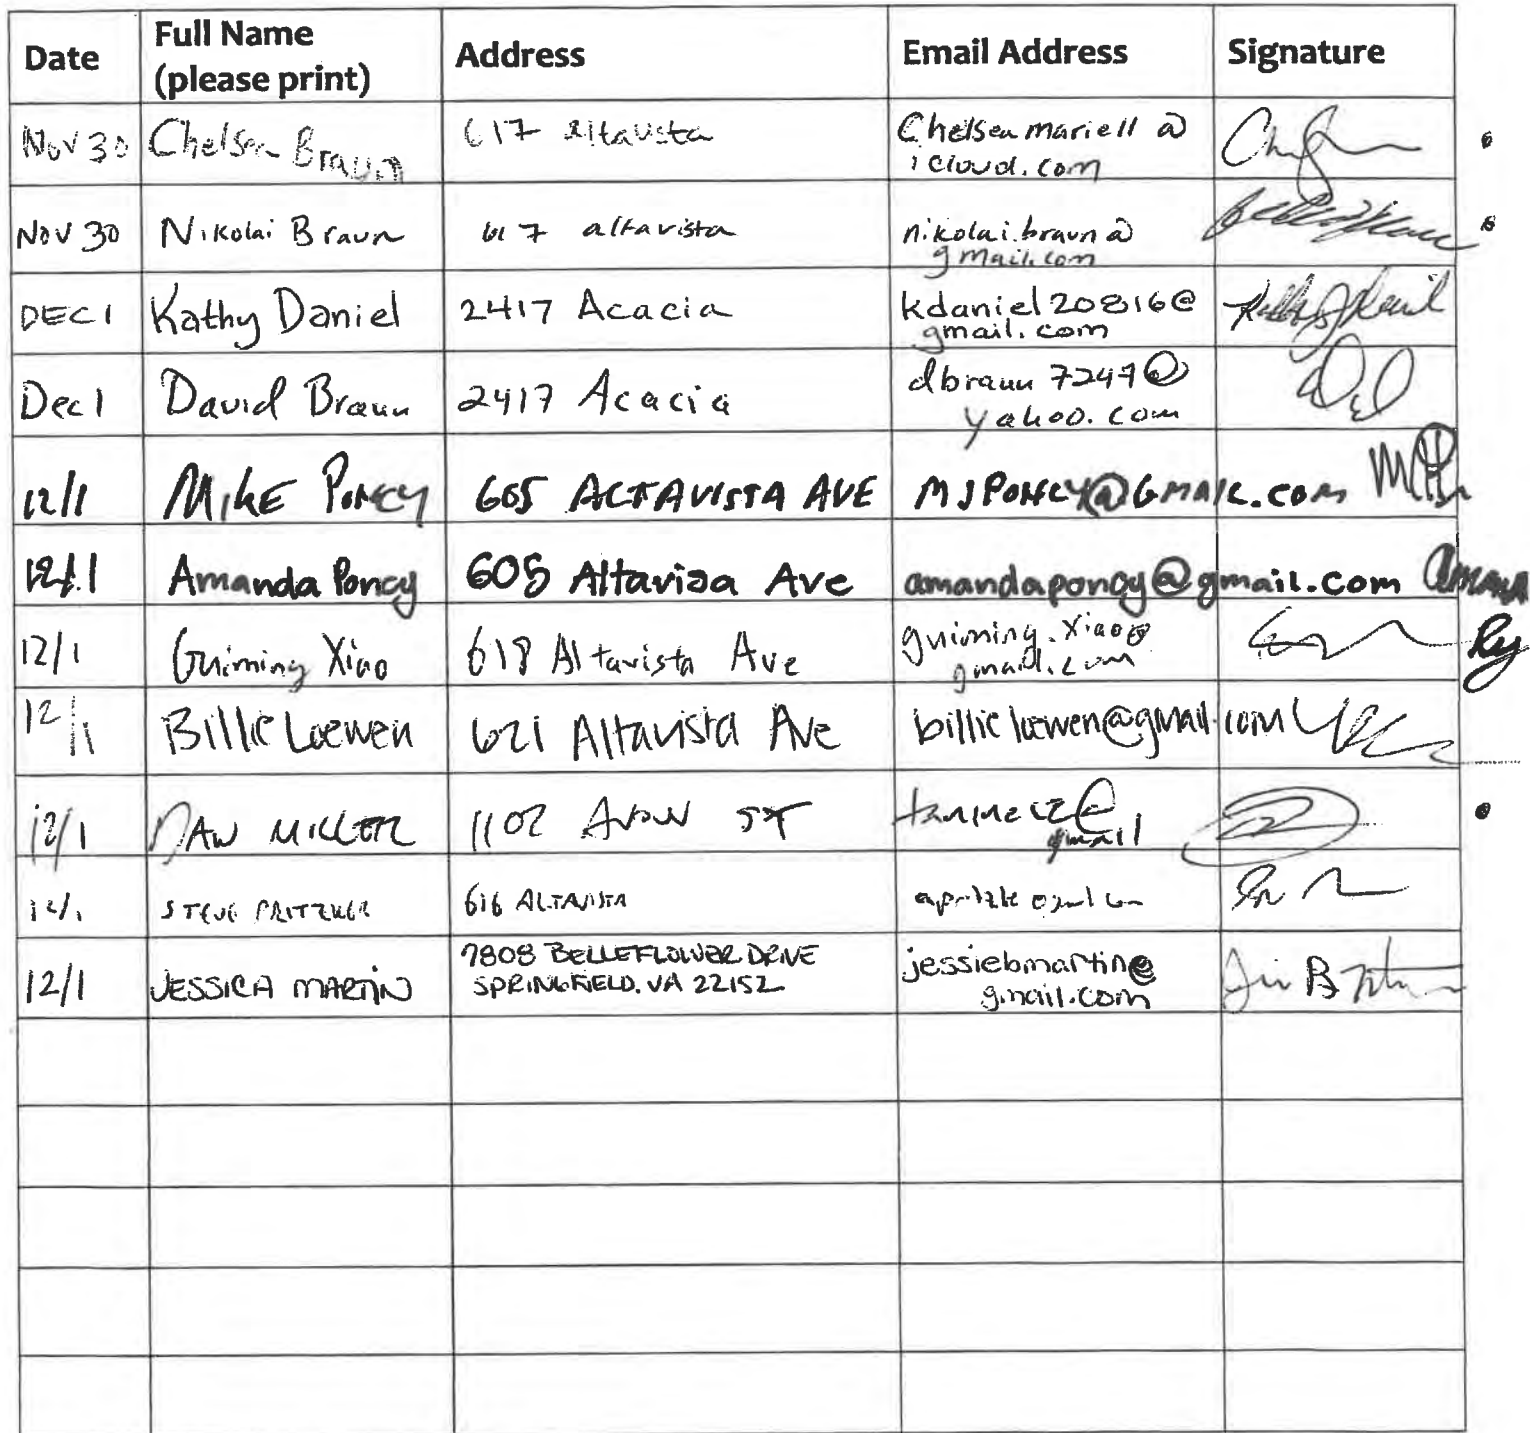 Date Full Name (please print) Address Email Address Signature
Nov 30 Chelsea Braun 617 altavista Chelseamariell@
icloud.com
Nov 30 Nikolai Braun 617 altavista nikolai.braun@
gmail.com
DEC 1 Kathy Daniel 2417 Acacia kdaniel20816@
gmail.com
Dec 1 David Braun 2417 Acacia dbraun7247@
yahoo.com
12/1 MIKE PONCY 605 ALTAVISTA AVE MJPONCY@GMAIL.COM
12/1 Amanda Poncy 605 Altavisa Ave amandaponcy@gmail.com Amanda
Py
12/1 Guiming Xiao 618 Altavista Ave guiming.xiao@
gmail.com
12/1 Billie Loewen 621 Altavista Ave billieloewen@gmail.com
12/1 MILLER 1102 AVON ST
gmail
12/1 STEVE PRITZKER 616 ALTAVISTA
12/1 JESSICA MARTIN 7808 BELLEFLOWER DRIVE
SPRINGFIELD, VA 22152 jessiebmartin@
gmail.com